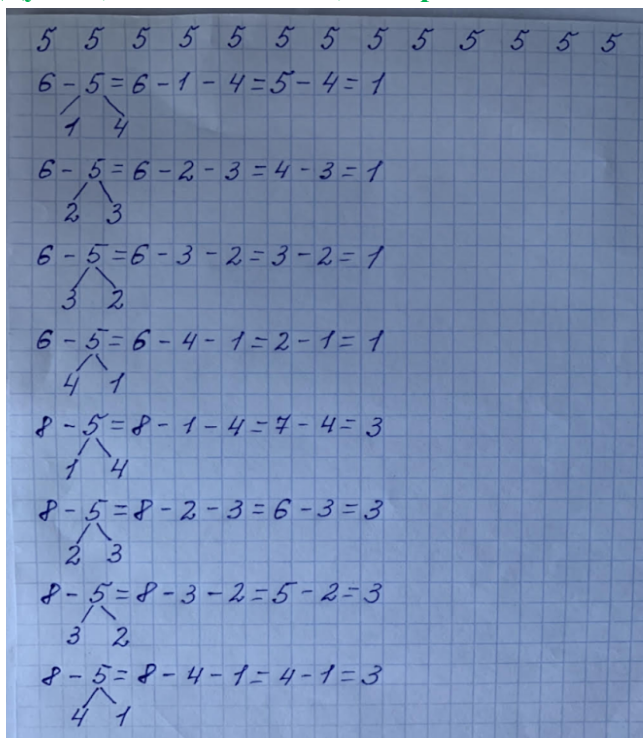 5 5 5 5 5 5 5 5 5 5 5 5 5
6 - 5 = 6 - 1 - 4 = 5 - 4 = 1
1 4
6 - 5 = 6 - 2 - 3 = 4 - 3 = 1
2 3
6 - 5 = 6 - 3 - 2 = 3 - 2 = 1
3 2
6 - 5 = 6 - 4 - 1 = 2 - 1 = 1
4 1
8 - 5 = 8 - 1 - 4 = 7 - 4 = 3
1 4
8 - 5 = 8 - 2 - 3 = 6 - 3 = 3
2 3
8 - 5 = 8 - 3 - 2 = 5 - 2 = 3
3 2
8 - 5 = 8 - 4 - 1 = 4 - 1 = 3
4 1